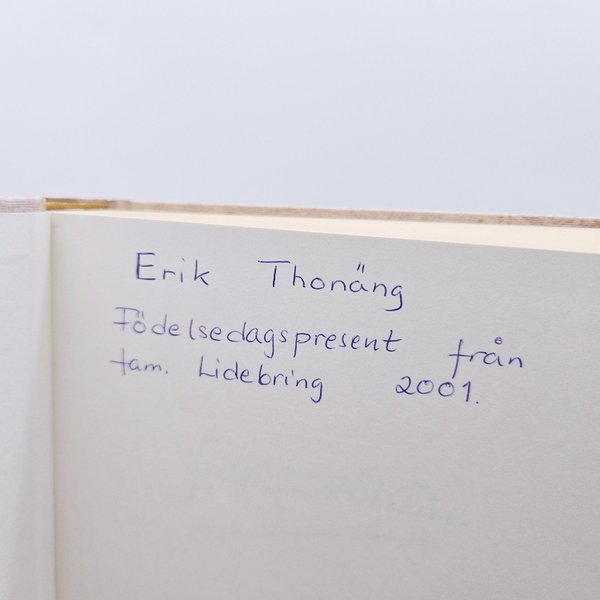 Erik Thonäng
Födelsedagspresent från
fam. Lidebring 2001.